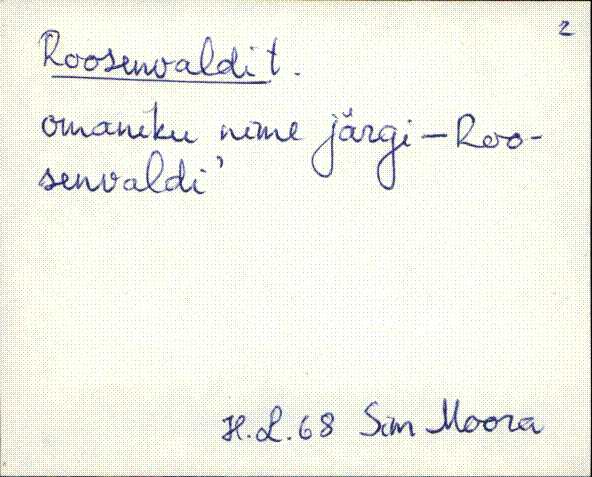 2
Roosenvaldi t.
omaniku nime järgi – Roo-
senvaldi'
H.L. 68 Sim Moora